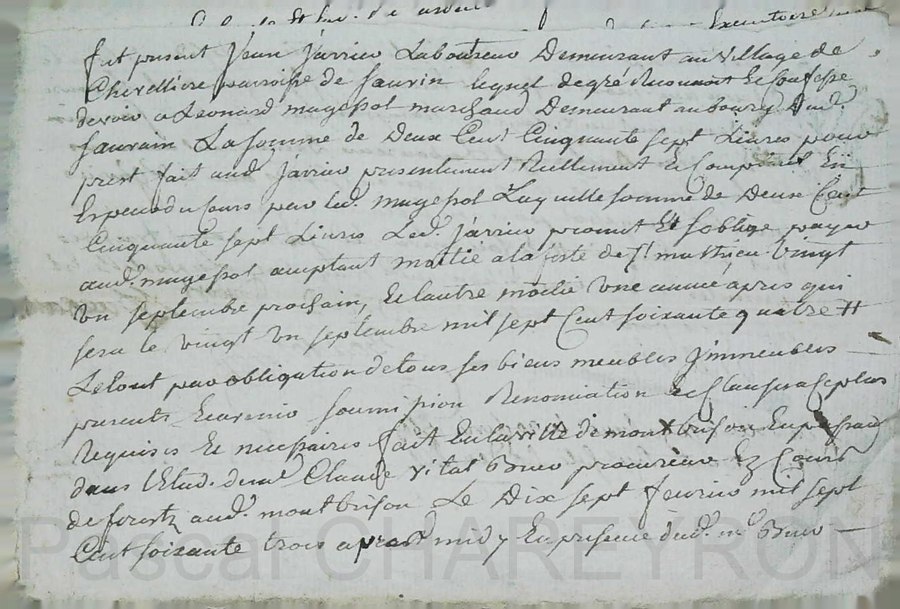 fut present Jean Jarrier Laboureur Demeurant au village de
Chevelliere parroisse de Sauvain lequel de gré Reconnoit Et Confesse
devoir a Leonard magessot marchand Demeurant au bourg Dud.
Sauvain La somme de Deux Cent Cinquante sept Livres pour
prest fait aud. Jarrier presentement Reellement Et Comptant En
Especes du Cours par led. magessot Laquelle somme de Deux Cent
Cinquante sept Livres Led. Jarrier promet Et soblige payer
aud. magessot acomptant moitié a la feste de St. mathieu vingt
un septembre prochain, Et lautre moitié une année apres qui
sera le vingt un septembre mil sept Cent soixante quatre
Le tout par obligation de tous ses biens meubles Jmmeubles
presents Et avenir soumission Renonciation Et Clauses a ce plus
Requises Et necessaires fait En la ville de montbrison En passant
dans l'Etud. de me. Claude vital Bruer procureur Ez Cours
de forestz aud. montbrison Le Dix sept fevrier mil sept
Cent soixante trois apres midy En presence dud. me. Bruer
Pascal CHAREYRON